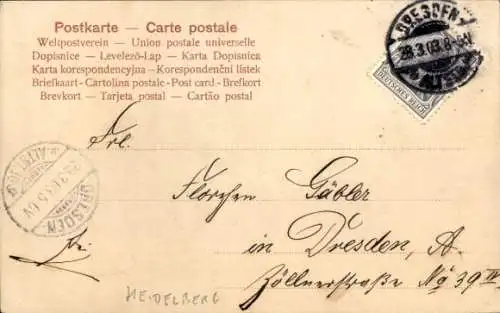 Postkarte — Carte postale
Weltpostverein — Union postale universelle
Dopisnice — Levelező-Lap — Karta Dopisnica
Karta korespondencyjna — Korespondenční listek
Briefkaart - Cartolina postale - Post card - Brefkort
Brevkort — Tarjeta postal — Cartão postal
DRESDEN
28.3.03. 8-9N
DEUTSCHES REICH
Frl.
Florchen Gäbler
in Dresden, A.
Zöllnerstraße No 39 IV
DRESDEN
Frei
HEIDELBERG